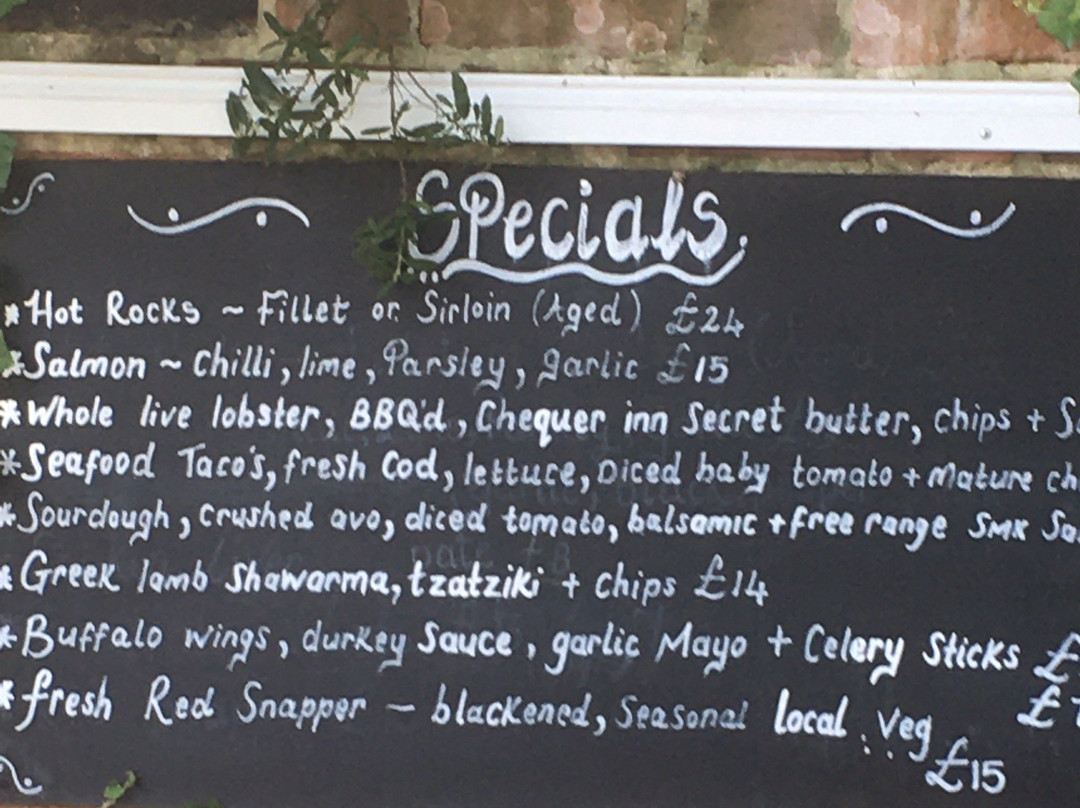 Specials.
*Hot Rocks ~ Fillet or Sirloin (Aged) £24
*Salmon ~ chilli, lime, Parsley, garlic £15
*Whole live lobster, BBQ'd, Chequer inn Secret butter, chips +
*Seafood Taco's, fresh Cod, lettuce, Diced baby tomato + Mature
*Sourdough, crushed avo, diced tomato, balsamic + free range
*Greek lamb Shawarma, tzatziki + chips £14
*Buffalo wings, durkey Sauce, garlic Mayo + Celery Sticks £
£
*fresh Red Snapper - blackened, Seasonal local Veg
£15